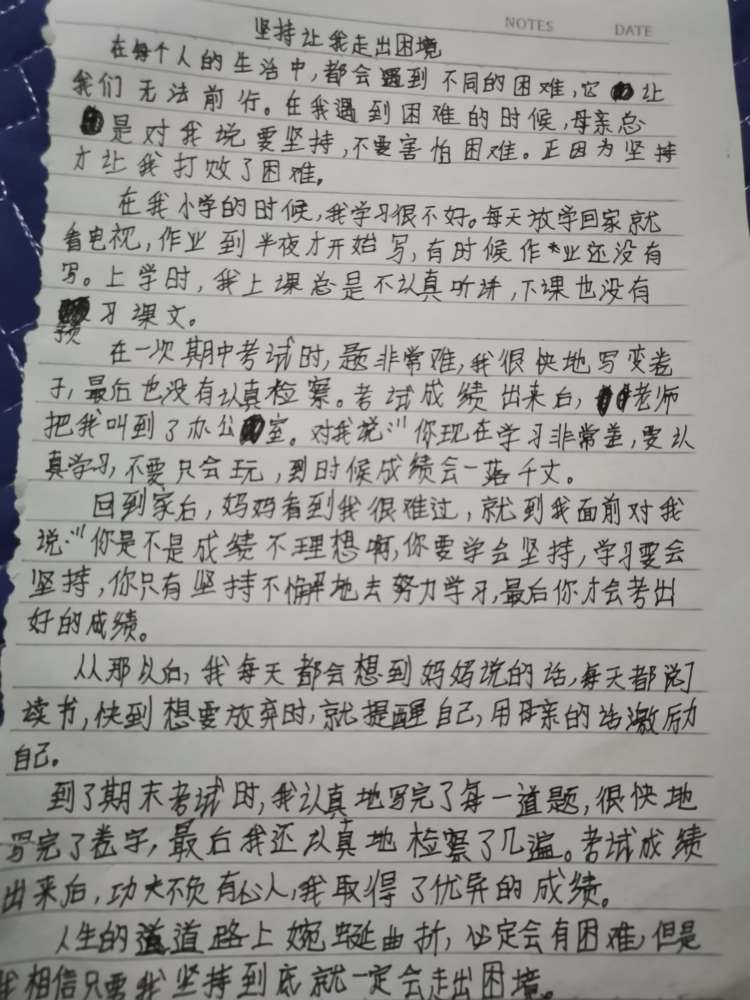 NOTES DATE
坚持让我走出困境
在每个人的生活中,都会遇到不同的困难,它让
我们无法前行。在我遇到困难的时候,母亲总
是对我说要坚持,不要害怕困难。正因为坚持
才让我打败了困难。
在我小学的时候,我学习很不好。每天放学回家就
看电视,作业到半夜才开始写,有时候作业还没有
写。上学时,我上课总是不认真听讲,下课也没有
预习课文。
在一次期中考试时,题非常难,我很快地写变卷
子,最后也没有认真检察。考试成绩出来后,老师
把我叫到了办公室。对我说:“你现在学习非常差,要认
真学习,不要只会玩,到时候成绩会一落千丈。
回到家后,妈妈看到我很难过,就到我面前对我
说:“你是不是成绩不理想啊,你要学会坚持,学习要会
坚持,你只有坚持不懈地去努力学习,最后你才会考出
好的成绩。
从那以后,我每天都会想到妈妈说的话,每天都阅
读书,快到想要放弃时,就提醒自己,用母亲的话激励
自己。
到了期末考试时,我认真地写完了每一道题,很快地
写完了卷字,最后我还认真地检察了几遍。考试成绩
出来后,功夫不负有心人,我取得了优异的成绩。
人生的道道路上婉蜒曲折,必定会有困难,但是
我相信只要我坚持到底就一定会走出困境。